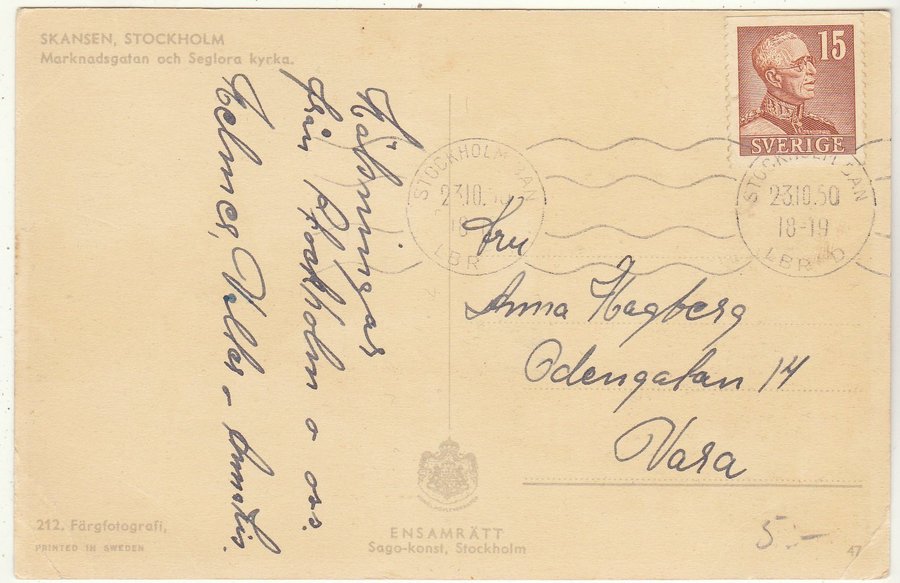 SKANSEN, STOCKHOLM
Marknadsgatan och Seglora kyrka.
Hälsningar
från Stockholm o oss.
Helmer, Valter o
15
SVERIGE
STOCKHOLM BAN
23.10.50
18-19
LBR D
STOCKHOLM BAN
23.10.
18
LBR
Fru
Anna Hagberg
Odengatan 14
Vara
ENSAMRÄTT
Sago-konst, Stockholm
212. Färgfotografi,
PRINTED IN SWEDEN
5:-
47